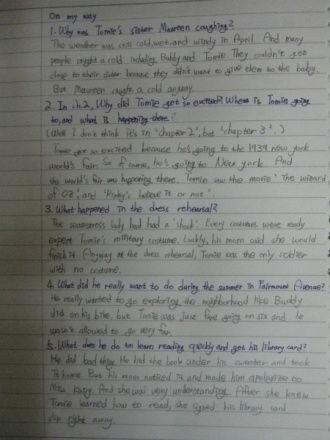 On my way
1. Why was Tomie's sister Maureen coughing?
The weather was still cold, wet, and windy in April. And many
people caught a cold including Buddy and Tomie. They couldn't get
close to their sister because they didn't want to give them to the baby.
But Maureen caught a cold anyway.
2. In ch.2, Why did Tomie get so excited? Where is Tomie going
to, and what is happening there?
(Well I don't think it's in 'chapter 2', but 'chapter 3'.)
Tomie got so excited because he's going to the 1939 new york
world's fair. So of course, he's going to New york. And
the world's fair was happening there. Tomie saw the movie 'The wizard
of OZ', and 'Ripley's believe it or not'.
3. What happened in the dress rehearsal?
The seamstress lady had had a 'shock'. Every costumes were ready
expect Tomie's military costume. Luckily, his mom said she would
finish it. Anyway at the dress rehearsal, Tomie was the only soldier
with no costume.
4. What did he really want to do during the summer in Fairmount Avenue?
He really wanted to go exploring the neighborhood like Buddy
did on his bike, but Tomie was just five going on six and he
wasn't allowed to go very far.
5. What does he do to learn reading quickly and get his library card?
He did bad thing. He hid the book under his sweater and took
it home. But his mom noticed it and made him apologize to
Miss King. And she was very understanding. After she knew
Tomie learned how to read, she signed his library card
right away.